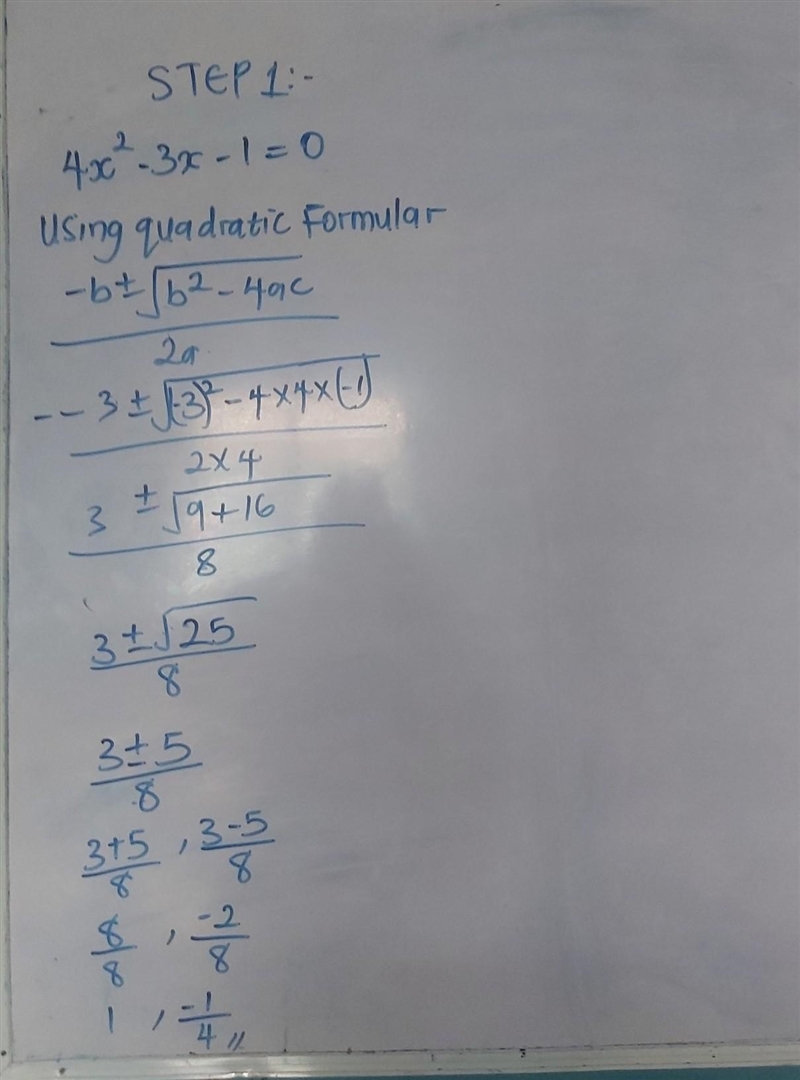 STEP 1:-
4x² - 3x - 1 = 0
Using quadratic Formular
-b ± √b² - 4ac
2a
- - 3 ± √(-3)² - 4 × 4 × (-1)
2 × 4
3 ± √9 + 16
8
3 ± √25
8
3 ± 5
8
3+5 , 3-5
8 8
8 , -2
8 8
1 , -1
4 ,,